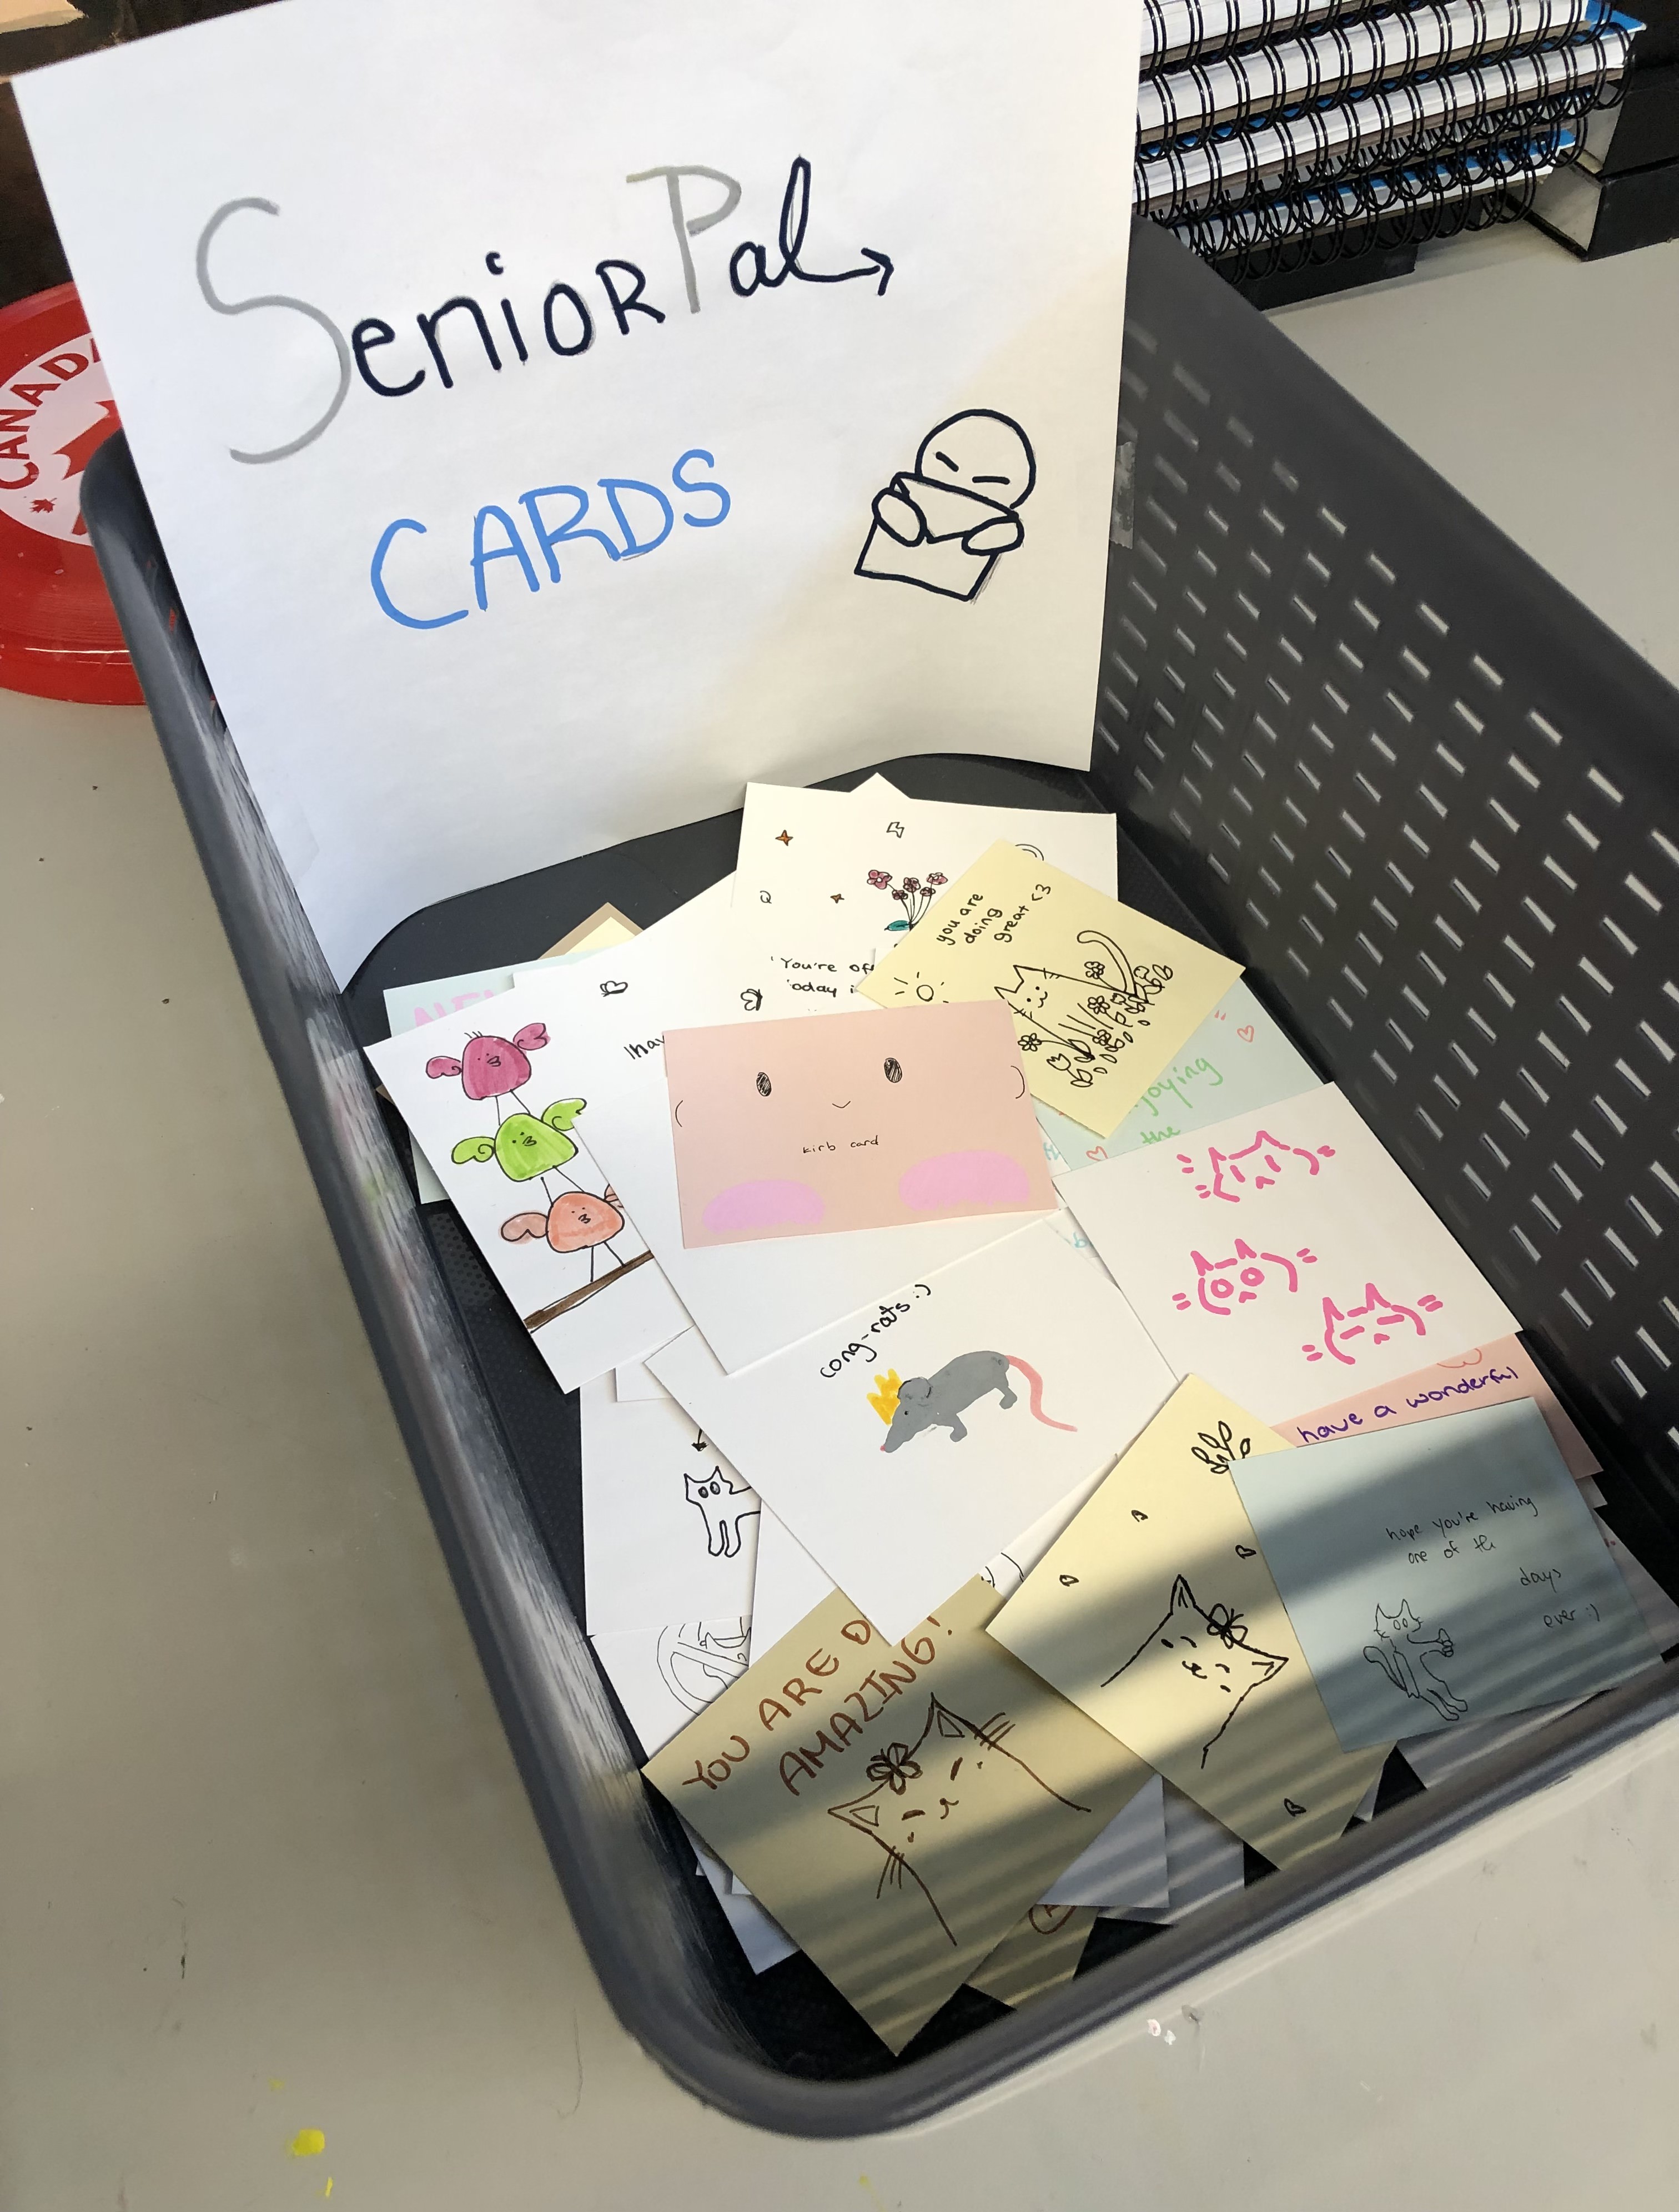 SenioR Pal
CARDS
CANADA
you are
doing
great <3
'You're
oday i
kirb card
joying
the
cong-rats :)
have a wonderful
hope you're having
one of the
days
ever :)
YOU ARE D
AMAZING!